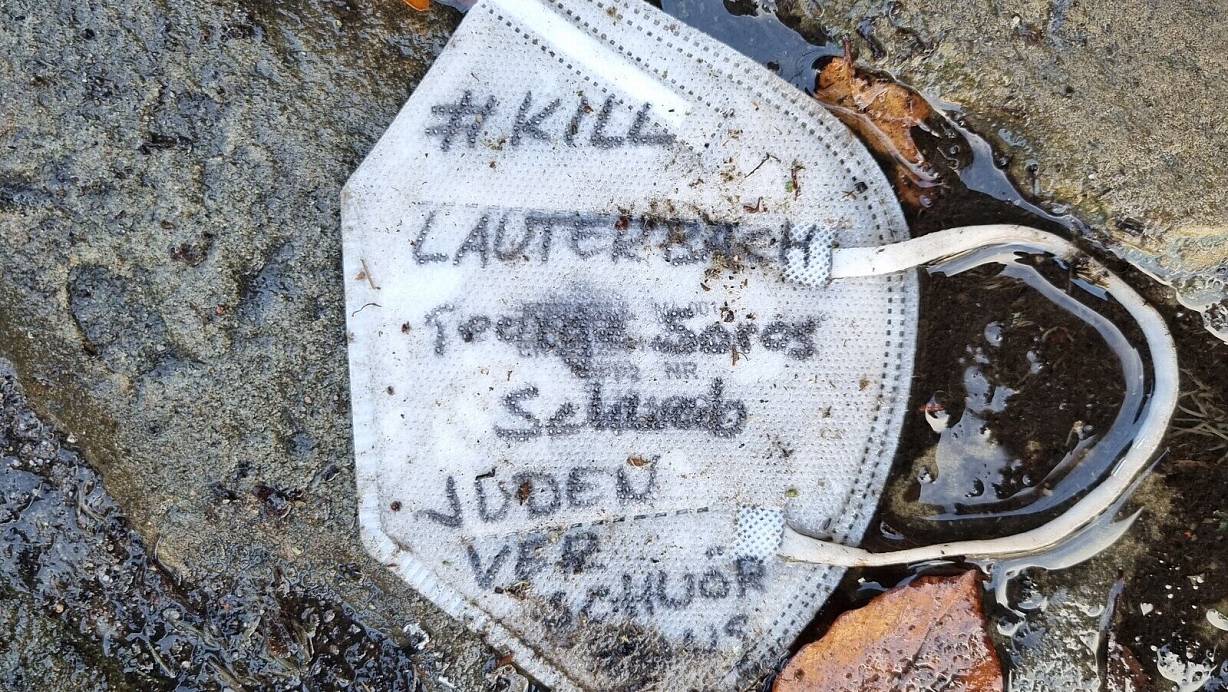 #KILL
LAUTERBACH
Soros
Schwab
JUDEN
VER
SCHWÖR
NR